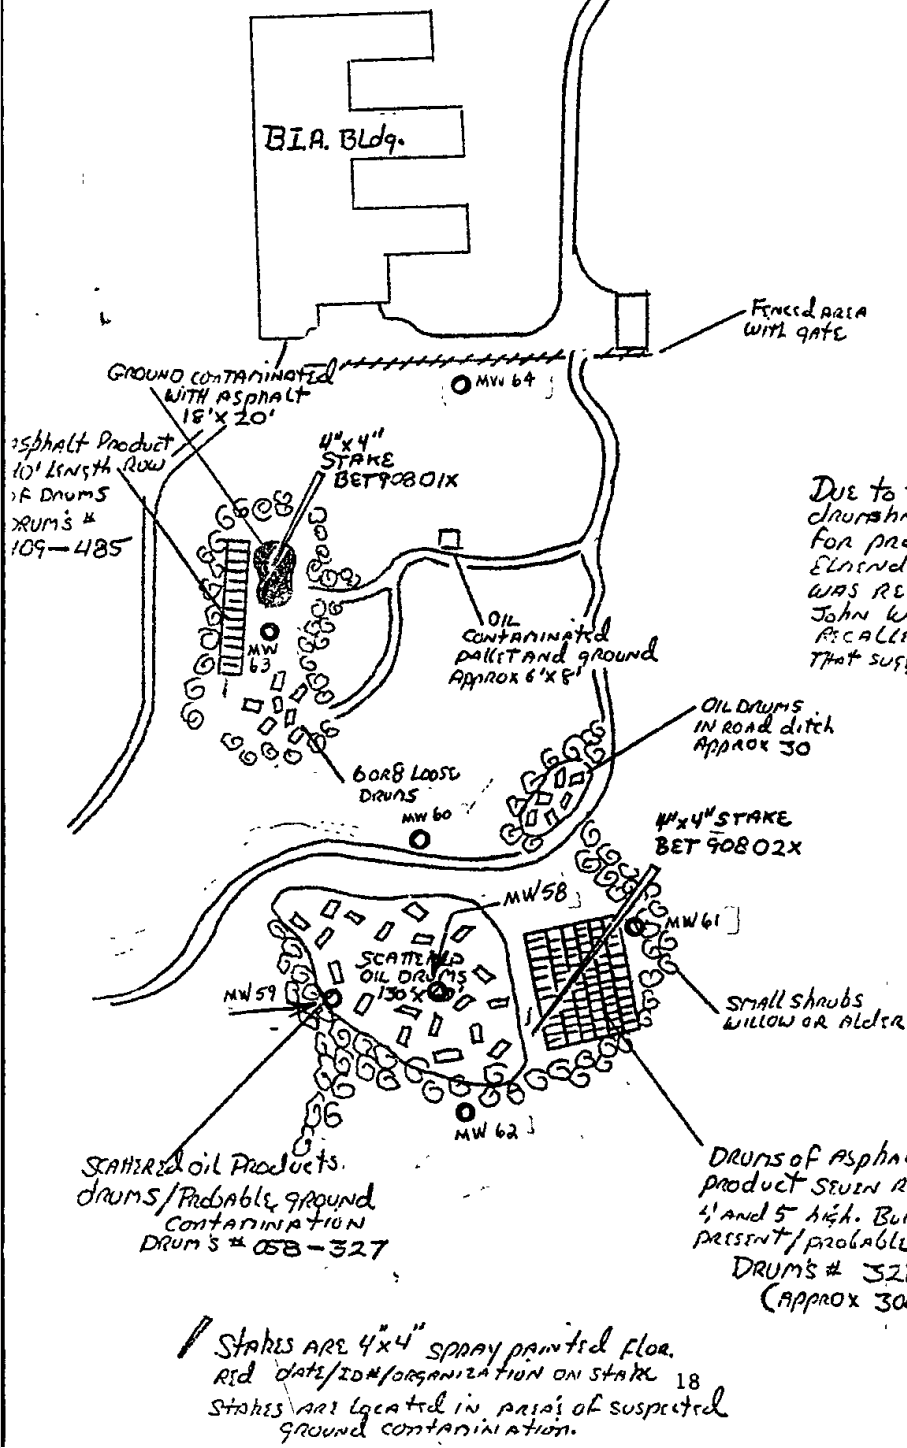 B.I.A. Bldg.
FENCED AREA
WITH GATE
MW 64
GROUND CONTAMINATED
WITH ASPHALT
18' X 20'
4"x4"
STAKE
BET90801X
Asphalt Product
10' LENGTH ROW
OF DRUMS
DRUM'S #
109-485
DUE TO
FOR
WAS
JOHN W
RECALLE
THAT
MW
63
OIL
CONTAMINATED
PALLET AND GROUND
APPROX 6'X8'
OIL DRUMS
IN ROAD ditch
APPROX 30
6 OR 8 LOOSE
DRUMS
MW 60
4"x4" STAKE
BET 90802X
MW58
MW 61
SCATTERED
OIL DRUMS
130'X
MW 59
SMALL SHRUBS
WILLOW OR ALDER
MW 62
SCATTERED OIL PRODUCTS.
DRUMS/PROBABLE GROUND
CONTAMINATION
DRUM'S # 058-327
DRUMS OF ASPHA
PRODUCT SEVEN R
4 AND 5 high. Bu
PRESENT/PROBABLE
DRUM'S # 32
(APPROX 30
STAKES ARE 4"x4" SPRAY PAINTED FLOR.
RED DATE/ID#/ORGANIZATION ON STAKE
18
STAKES ARE LOCATED IN AREA'S OF SUSPECTED
GROUND CONTAMINATION.